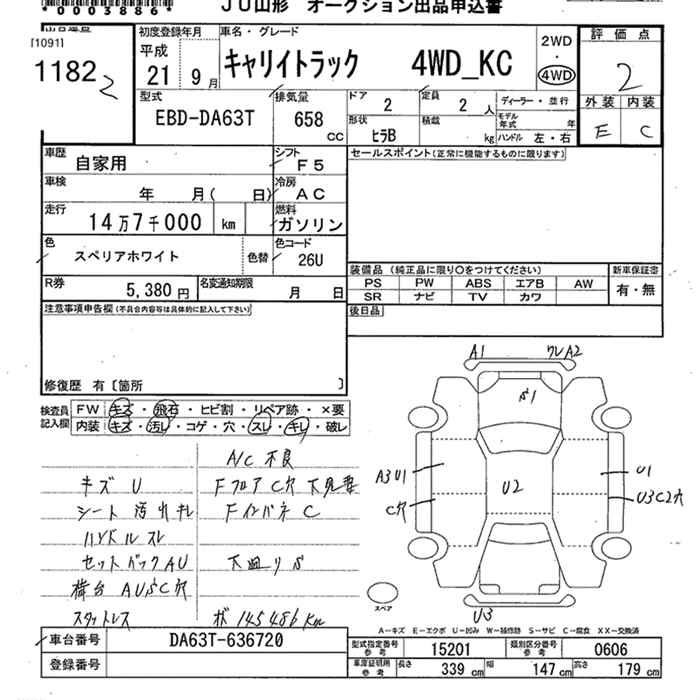 *0003886*
JU山形 オークション出品申込書
[1091]
1182 2
初度登録年月
平成
21年 9月
車名・グレード
キャリイトラック 4WD_KC
2WD
・
4WD
評価点
2
外装 内装
E C
型式
EBD-DA63T
排気量
658
CC
ドア
2
定員
2 人
形状
ヒラB
積載
kg
ディーラー・並行
モデル年式 年
ハンドル 左・右
車歴
自家用
シフト
F5
セールスポイント(正常に機能するものに限ります)
車検
年 月( 日)
冷房
AC
走行
14万7千000 km
燃料
ガソリン
色
スペリアホワイト
色替
色コード
26U
装備品 (純正品に限り○をつけてください)
PS PW ABS エアB AW
SR ナビ TV カワ
新車保証書
有・無
R券
5,380円
名変通知期限
月 日
後日品
注意事項申告欄(不具合内容等は具体的に記入して下さい)
修復歴 有〔箇所 〕
検査員
記入欄
FW キズ・飛石・ヒビ割・リペア跡・×要
内装 キズ・汚レ・コゲ・穴・スレ・キレ・破レ
A/C 不良
キズ U
FフロアC穴 下見要
シート 汚レ 切れ
FインパネC
ハンドルスレ
セットバックAU
下回りS
荷台 AUSC穴
スタットレス
ボ 145486km
A1
ワレA2
S1
A3U1
C穴
U2
U1
U3C2穴
U3
スペア
A-キズ E-エクボ U-凹み W-補修跡 S-サビ C-腐食 XX-交換済
車台番号
DA63T-636720
登録番号
型式指定番号
参考
15201
類別区分番号
参考
0606
車庫証明用
参考
長さ
339 cm
幅
147 cm
高さ
179 cm